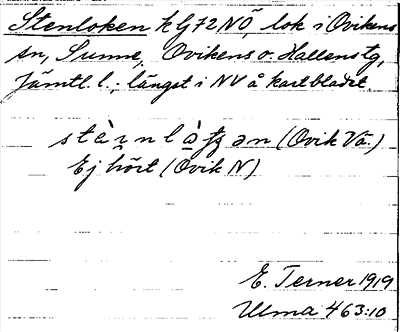 Stenloken k G72 NÖ, lok i Ovikens
sn, Sunne, Ovikens o. Hallens tg,
Jämtl. l., längst i NV å kartbladet.
(Ovik Vä.)
Ej hört (Ovik N)
E. Terner 1919
Ulma 463:10